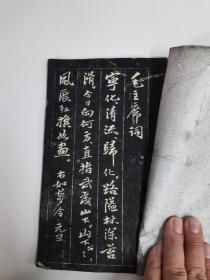 毛主席词
宁化清流归化路隘林深苔
滑今日向何方直指武夷山下山下〻
风展红旗如画
右如梦令元旦